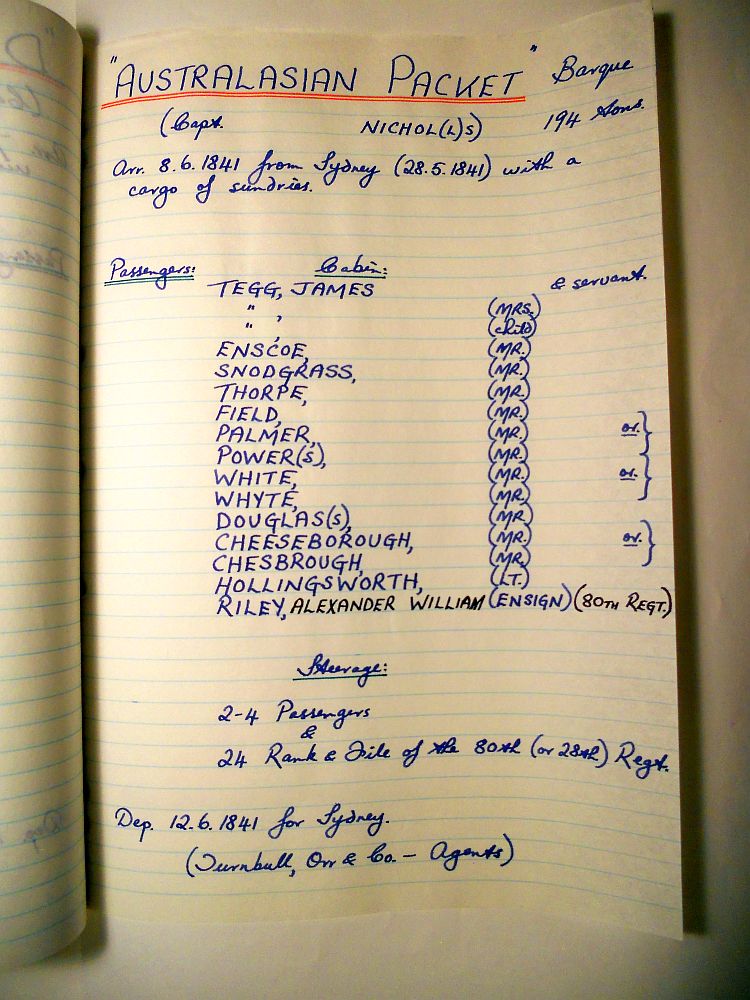 "AUSTRALASIAN PACKET" Barque
(Capt. NICHOL(L)S) 194 tons.
Arr. 8.6.1841 from Sydney (28.5.1841) with a
cargo of sundries.
Passengers: Cabin:
TEGG, JAMES & servant.
" , (MRS.)
" , (child)
ENSCOE, (MR.)
SNODGRASS, (MR.)
THORPE, (MR.)
FIELD, (MR.)
PALMER, (MR.) or. }
POWER(S), (MR.)
WHITE, (MR.) or. }
WHYTE, (MR.)
DOUGLAS(S), (MR.)
CHEESEBOROUGH, (MR.) or. }
CHESBROUGH, (MR.)
HOLLINGSWORTH, (LT.)
RILEY, ALEXANDER WILLIAM (ENSIGN) (80TH REGT.)
Steerage:
2-4 Passengers
&
24 Rank & File of the 80th (or 28th) Regt.
Dep. 12.6.1841 for Sydney.
(Turnbull, Orr & Co. - Agents)